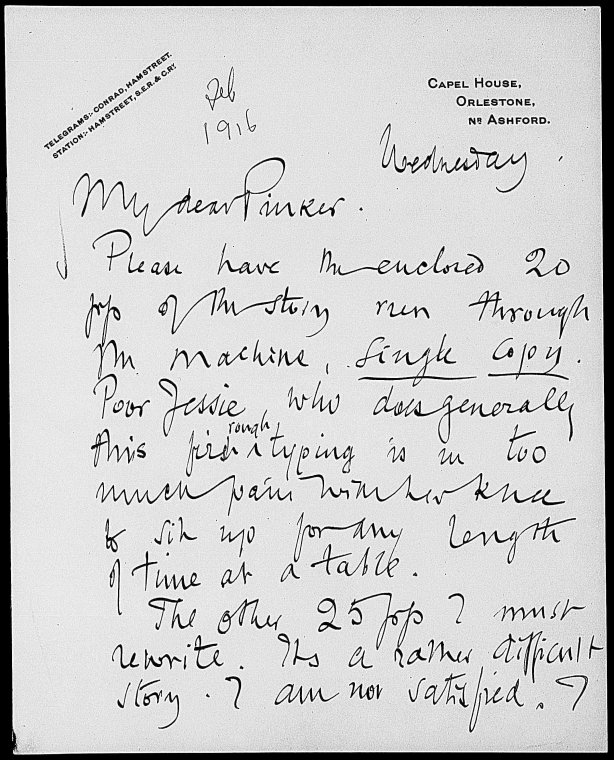 TELEGRAMS:- CONRAD, HAMSTREET.
STATION:- HAMSTREET, S.E.R. & C.RY.
Feb
1916
CAPEL HOUSE,
ORLESTONE,
NR ASHFORD.
Wednesday.
My dear Pinker.
Please have the enclosed 20
pp of the story run through
the machine, single copy.
Poor Jessie who does generally
this first rough typing is in too
much pain with her knee
to sit up for any length
of time at a table.
The other 25 pp I must
rewrite. Its a rather difficult
story. I am not satisfied. I